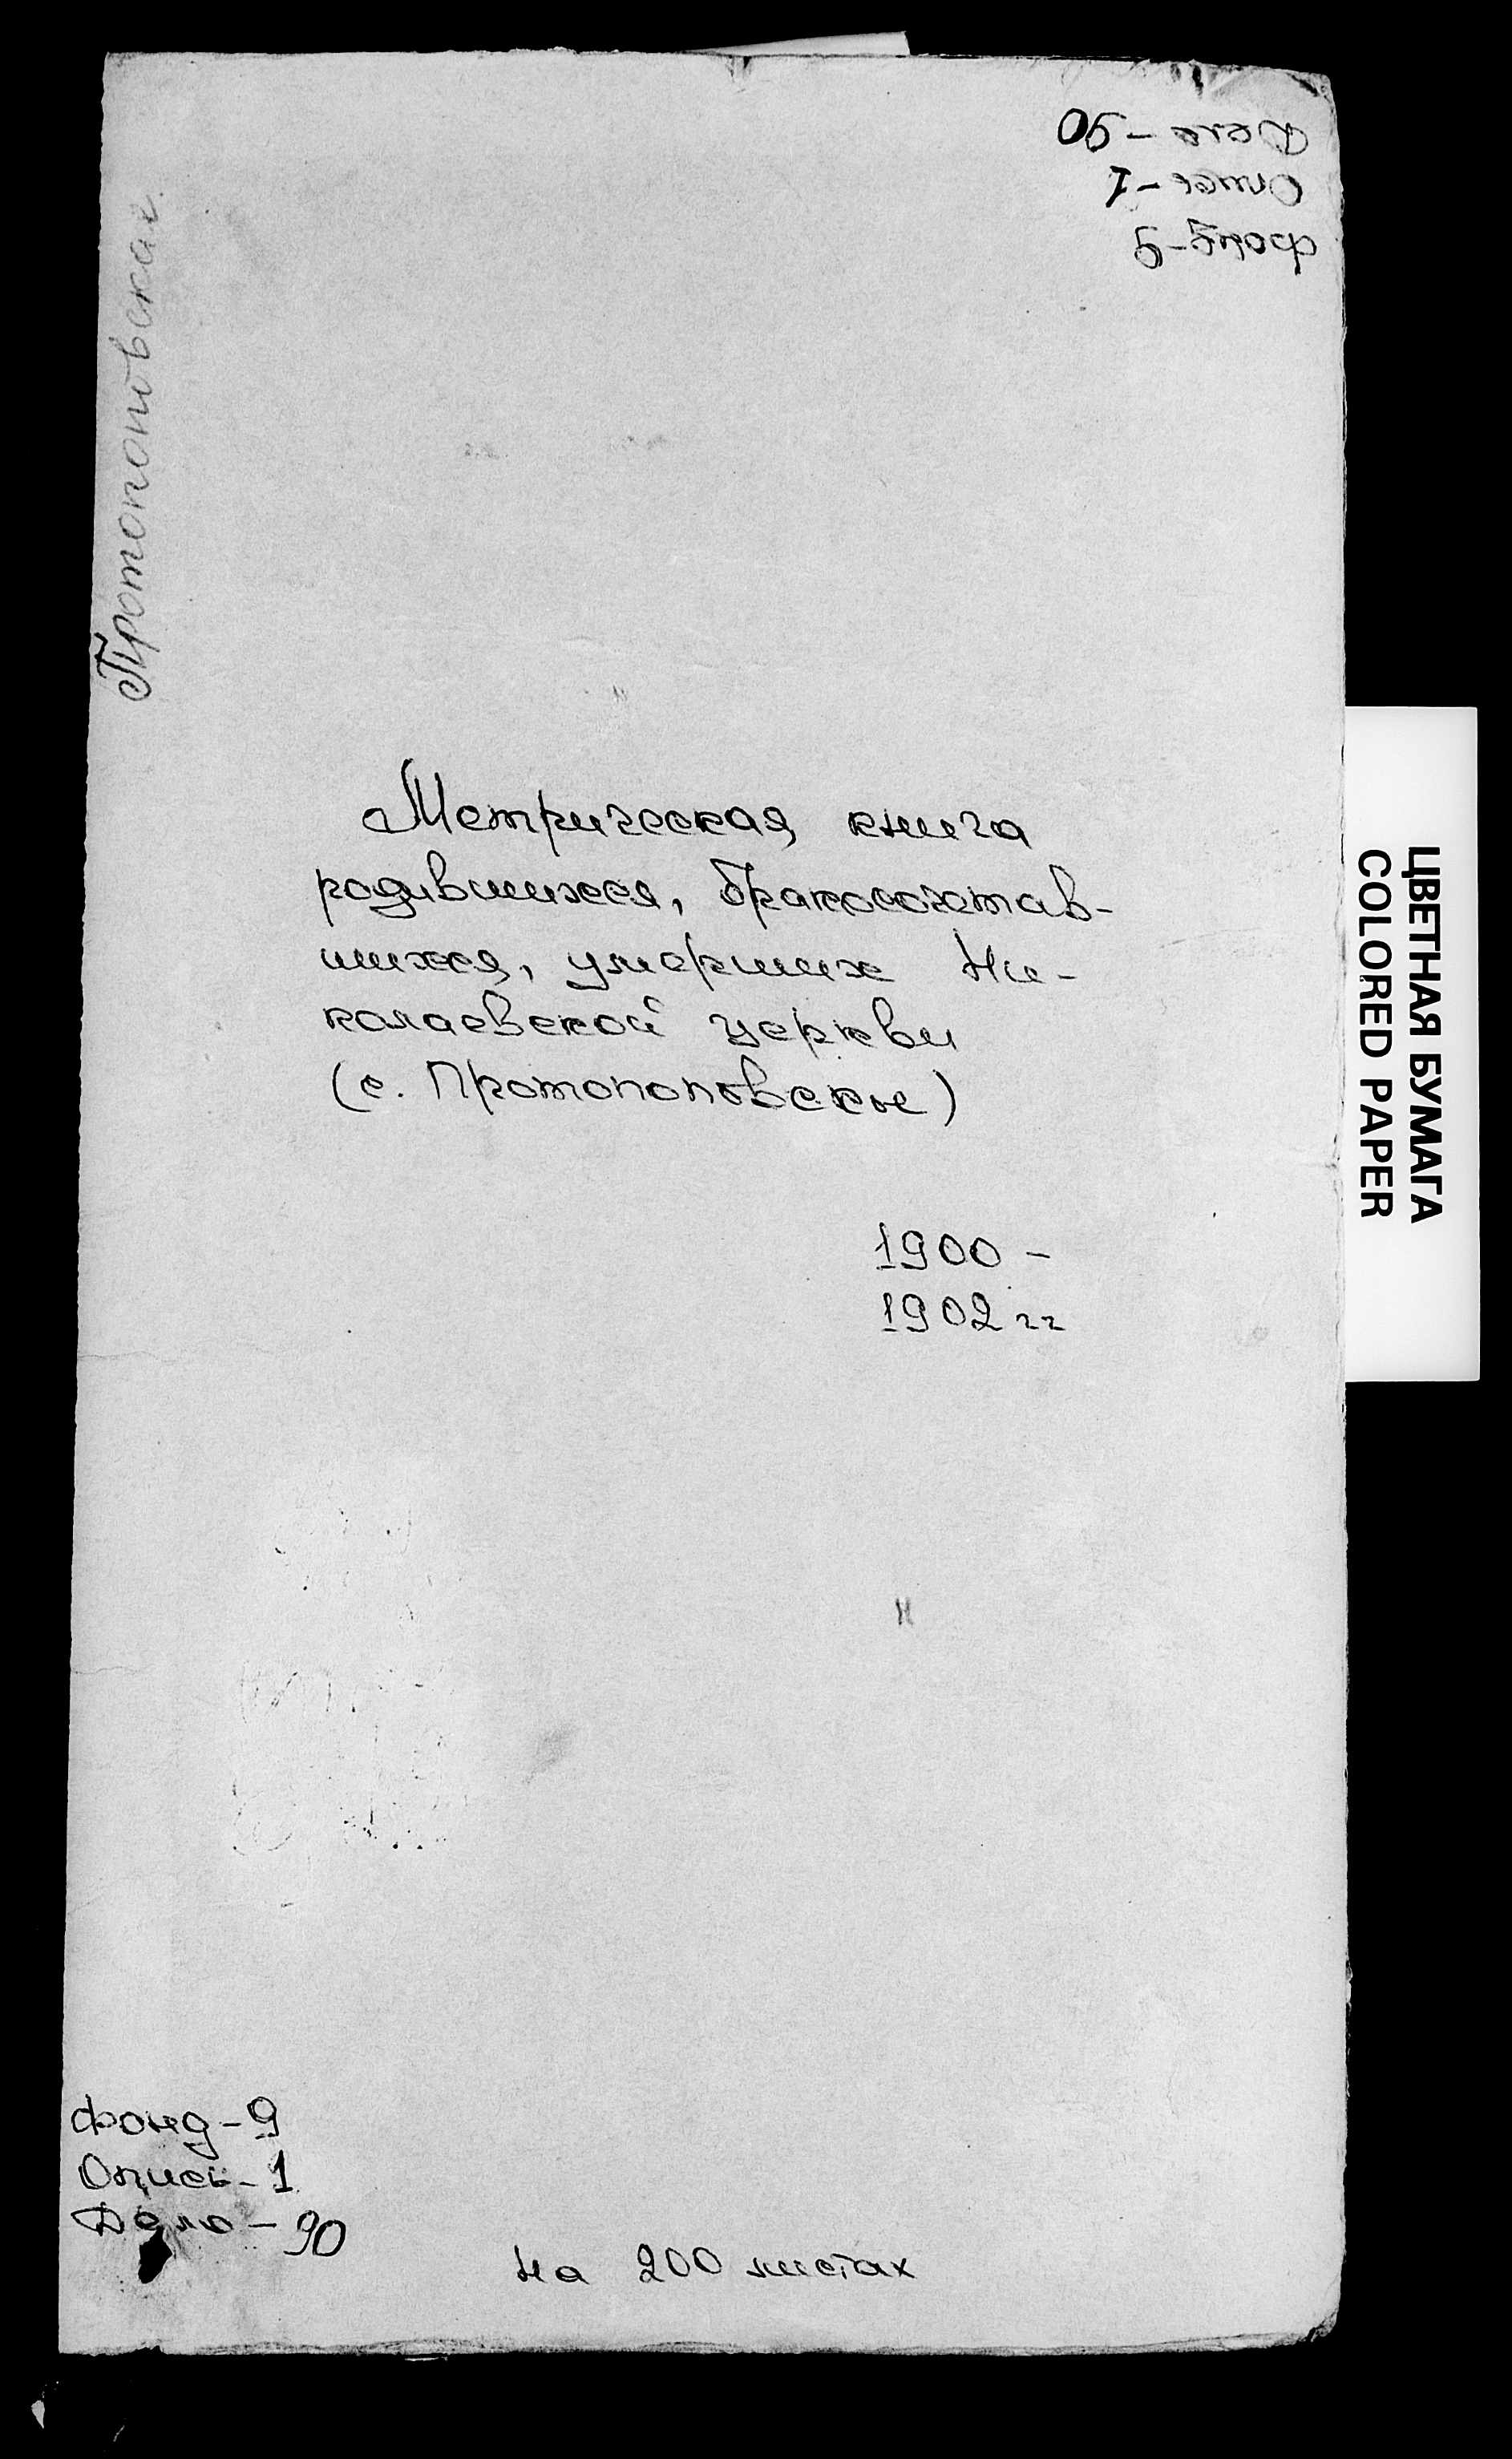 Дело - 90
Опись - 1
фонд - 9
Протопоповская
Метрическая книга
родившихся, бракосочетав-
шихся, умерших Ни-
колаевской церкви
(с. Протопоповское)
1900 -
1902 гг
ЦВЕТНАЯ БУМАГА
COLORED PAPER
фонд - 9
Опись - 1
Дело - 90
на 200 листах